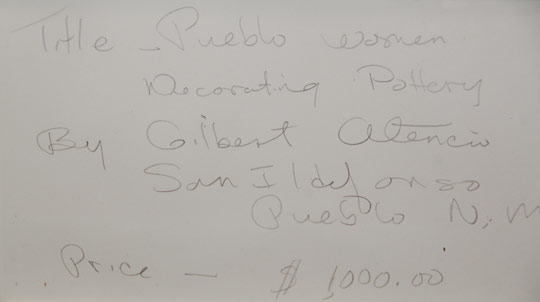 Title - Pueblo women
Decorating Pottery
By Gilbert Atencio
San Ildefonso
Pueblo N.M
Price - $1,000.00